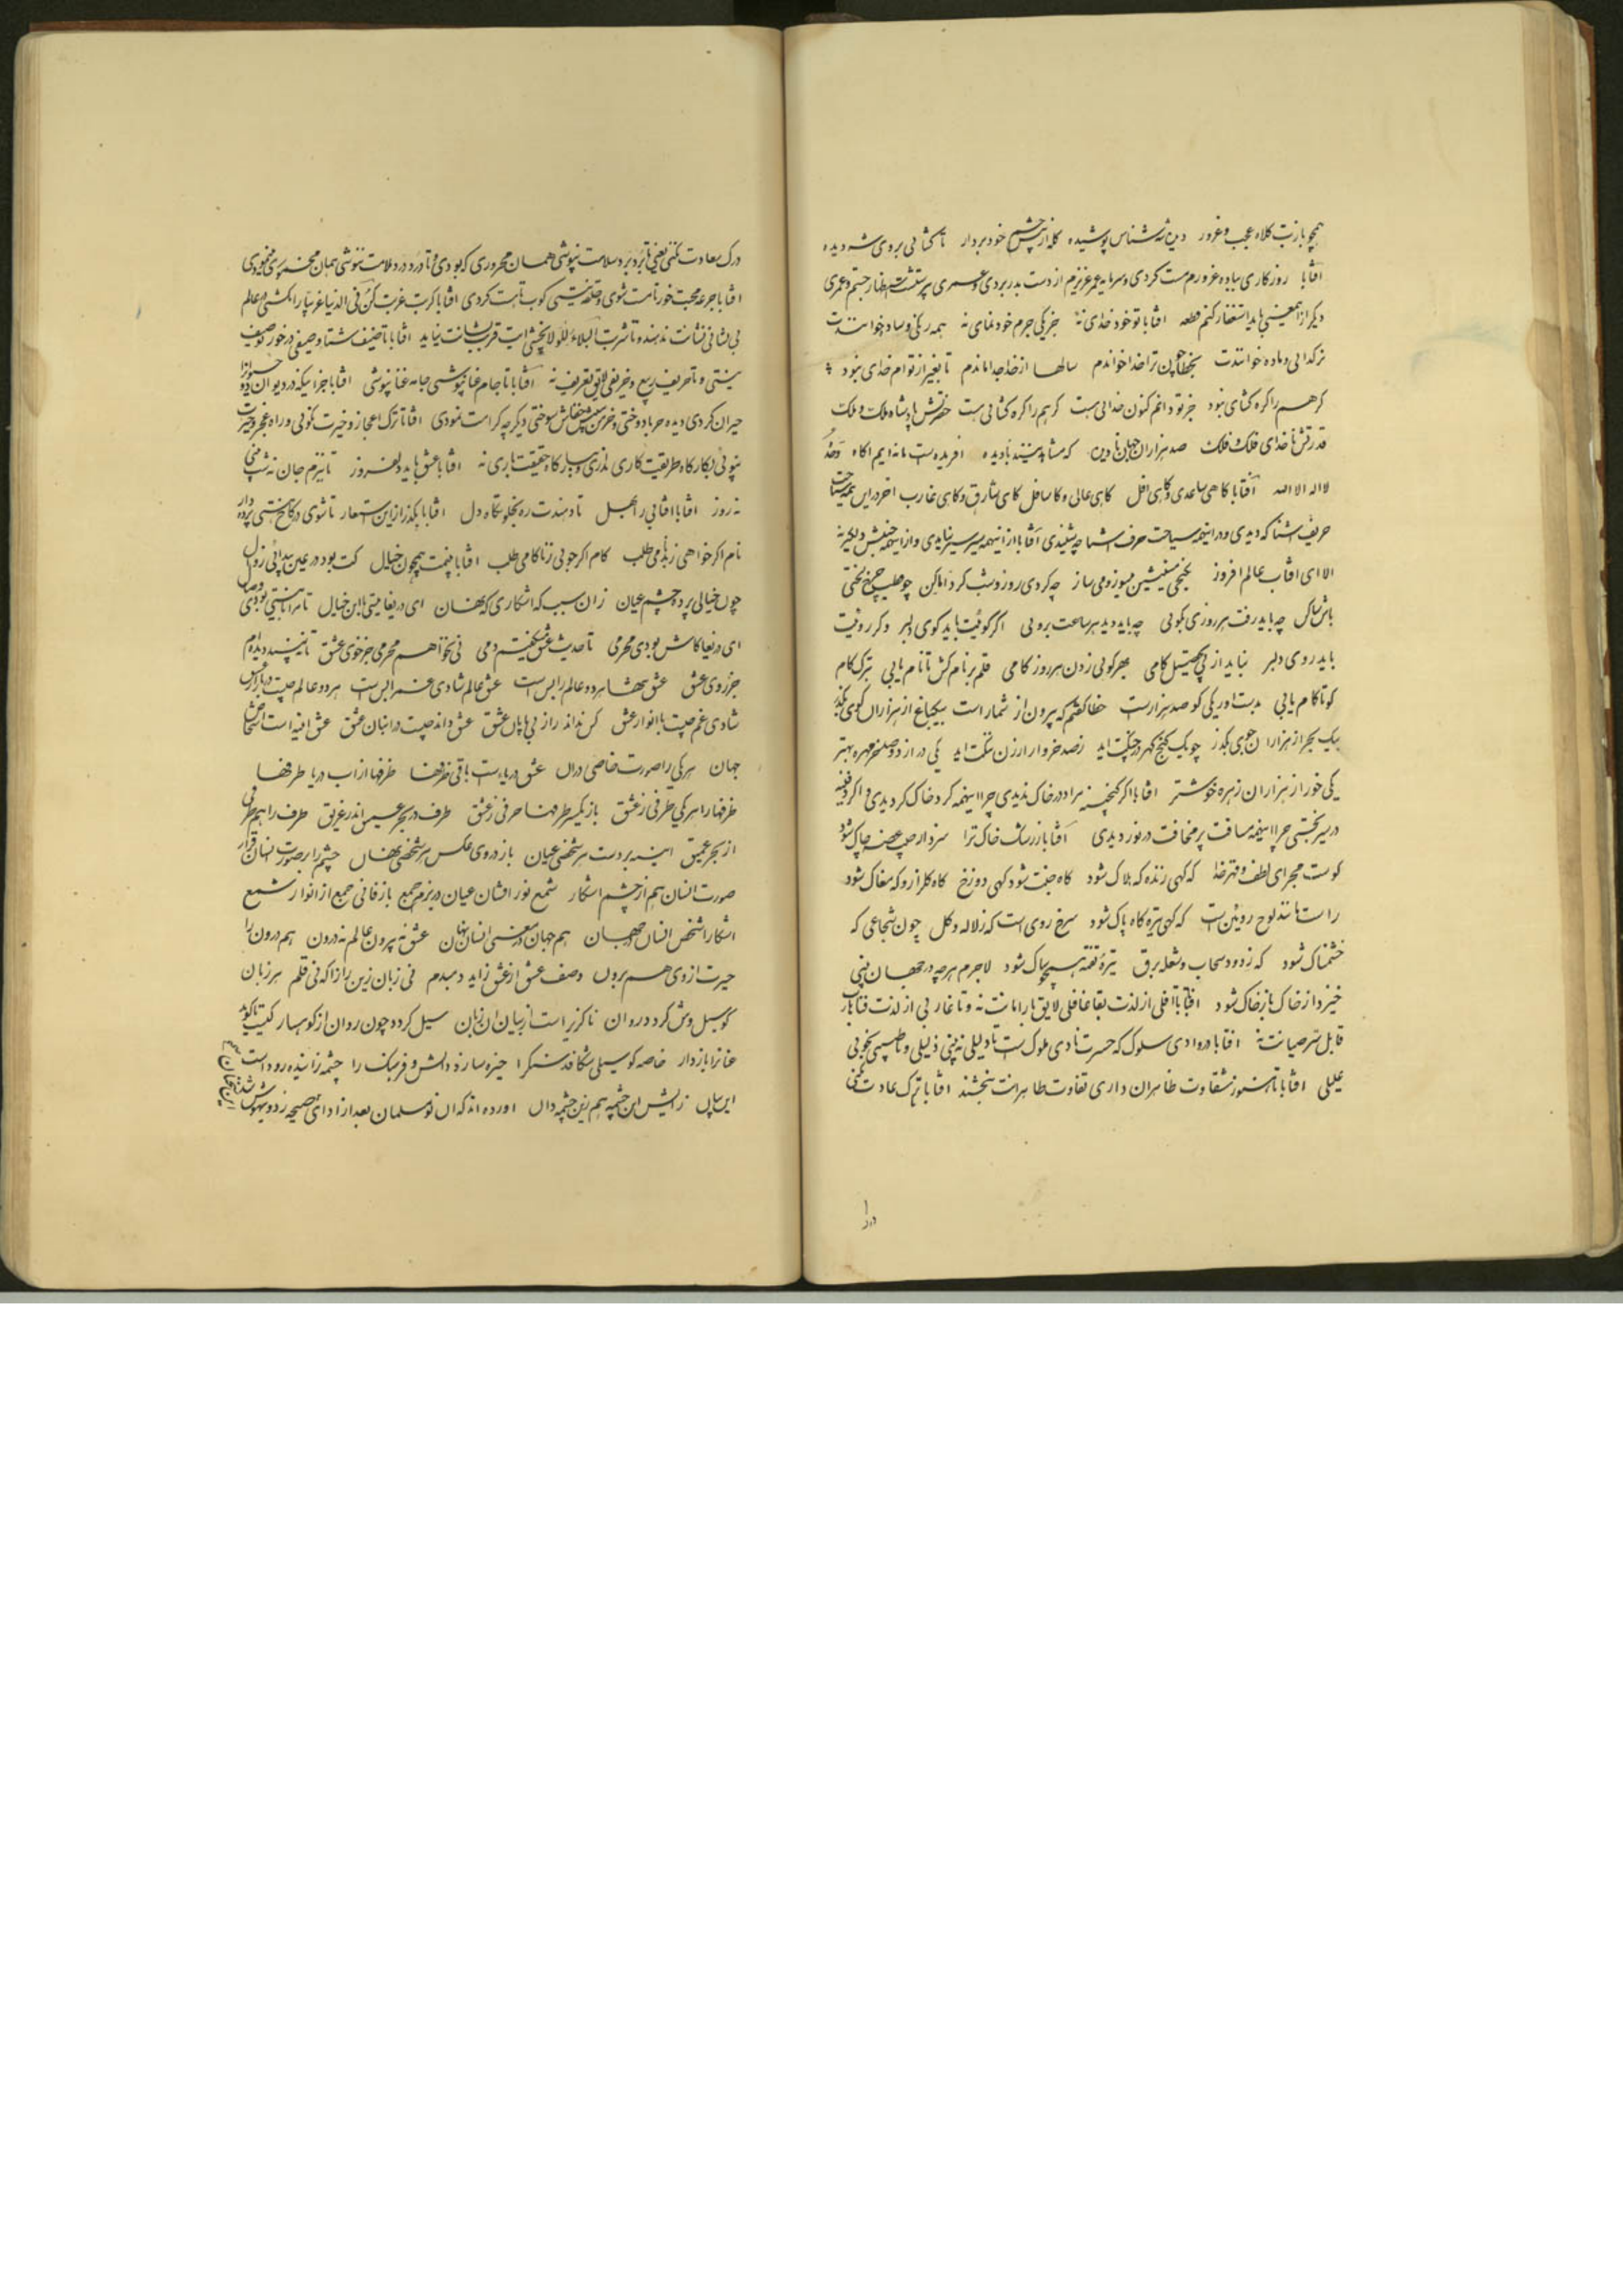 همچو بازت کلاه عجب و غرور دین شه شناس پوشیده کله از چشم خود بردار تا کشائی بروی شه دیده
افتابا روزکاری بباده غرورم مست کردی و سرمایه عمر عزیزم از دست بدر بردی و عمری پرستشت
دیکر از همعینی باید استغفار کنم قطعه افتابا تو خود خدای نهٔ جز یکی جرم خودنمای نهٔ همه رنکی و ساده خوانندت
نر کدایی و ماده خوانندت بخطا چون ترا خدا خواندم سالها از خدا جدا ماندم تا بغیر از تو ام خدای نبود
کرهم را کره کشای نبود جز تو دانم کنون خدایی هست کرهم را کره کشایی هست حضرتش پادشاه ملک و ملک
قدرتش ناخدای فلک و فلک صد هزاران جهان نادیده که مشاهد بینند نادیده افریده است ما نه ایم اکاه وحده
لااله الا الله آفتابا کاهی صاعدی و کاهی افل کاهی عالی و کا سافل کاهی شارق و کاهی غارب اخر در این همه سیاحت
حریف شنا که دیدی و در اینهمه سیاحت حرف اشنا چه شنیدی آفتابا از اینهمه سیر سیر نیایدی و از اینهمه جنبش دلکیر نه
الا ای افتاب عالم افروز بکنجی منشین میسوز و می ساز چه کردی روز و شب کرد اماکن چو قطب چرخ لختی
باش ساکن چه باید رفت هر روزی بکوئی چه باید دید هر ساعت بروئی اکر کوئیت باید کوی دلبر وکر روئیت
باید روی دلبر نباید از پی تحصیل کامی بهر کوئی زدن هر روز کامی قلم بر نام کش تا نام یابی بترک کام
کو تا کام یابی بدست اور یکی کو صد هزارست خطا کفتم که بیرون از شمار است بیکباغ از هزاران کوی بکذر
بیک بحر از هزاران جوی بکذر چو یک کنج کهر در چنکت اید ز صد خروار ارزن ننکت اید یکی در از دو صد خرمهره بهتر
یکی خور از هزاران زهره خوشتر افتابا اکر کنجینه مراد در خاک ندیدی چرا اینهمه کرد خاک کردیدی و اکر دفینه
در سیر نجستی چرا اینهمه مسافت پر مخافت در نوردیدی آفتابا زر سات خاک ترا سزد ار جیب عصمه چاک شود
کوست مجرای لطف و قهر خدا که کهی زنده که هلاک شود کاه جنت شود کهی دوزخ کاه کلزار و که مغاک شود
راست مانند لوح رویین است که کهی تیره کاه پاک شود سرخ روی است که ز لاله و کل چون شجاعی که
خشمناک شود که ز دود سحاب و شعله برق تیره تفته همچو ساک شود لاجرم هرچه در جهان بینی
خیزد از خاک باز خاک شود افتابا تا افلی از لذت بقا غافلی لایق بار امانت نه و تا غاربی از لذت فنا
قابل سر صیانت نه افتابا در وادی سلوک که حسرت نادی ملوک است تا دلیلی نه بینی ذلیلی و تا طبیبی نجوئی
علیلی افتابا تا هنوز شقاوت ظاهران داری تفاوت طاهرانت نبخشند افتابا تا ترک عادت نکنی
درک
درک سعادت نکنی یعنی تا برد برد سلامت نپوشی همان محروری که بودی و تا درد درد ملامت ننوشی همان مخموری که بودی
افتابا جرعه محبت خور تا مست شوی و حلقه نیستی کوب تا هست کردی افتابا کربت غربت کن فی الدنیا غریبا را نکشی در عالم
بی نشانی نشانت ندهند و تا شربت البلاء للولا نچشی ایت قرب بشانت نیاید افتابا تا ضیف شتا و صیفی درخور توصیف
نیستی و تا حریف ربیع و خریفی لایق تعریف نه آفتابا تا جام عنا ننوشی جامه غنا نپوشی افتابا جز اینکه در دیوان
حیران کردی دیده حربا دوختی و خرمن عیش خفاش سوختی دیکر چه کرامت نمودی افتابا ترک اعجاز و خیرت نکوئی و راه عجز و حیرت
نپوئی بکارکاه طریقت کاری نداری و ببارکاه حقیقت باری نه افتابا عشق باید دلفروز تا نیزم جان نه شب
نه روز افتابا افتابی را بهل تا دهندت ره بخلوتکاه دل افتابا بکذر از این مستعار تا شوی در کاخ هستی پرده دار
نام اکر خواهی ز بدنامی طلب کام اکر جوئی ز ناکامی طلب افتابا بینمت همچون خیال کت بود در عین پیدائی زوال
چون خیالی پرده چشم عیان زان سبب که اشکاری که نهان ای دریغا نیستی با این خیال تا مرا با نیستی بودی وصال
ای دریغا کاش بودی محرمی تا حدیث عشق کفتیم دمی نی نخواهم محرمی جز خوی عشق تا نبیند دیده ام
جز روی عشق عشق تنها هر دو عالم را بس است عشق عالم شادی عشقم را بس است هر دو عالم چیست در بازار عشق
شادی و غم چیست با انوار عشق کس نداند راز بی پایان عشق عشق داند چیست در انبان عشق عشق ائینه است
جهان هر یکی را صورت خاصی در ان عشق دریاست باقی ظرفها ظرفها از اب دریا طرفها
ظرفها را هر یکی ظرفی ز عشق باز یکسر طرفها حرفی ز عشق ظرف در بحر عمیق اندر غریق ظرف را هم ظرفی
از بحر عمیق اینه بر دست هر شخصی عیان باز در وی عکس هر شخصی نهان چشم را بر صورت نهان قرار
صورت انسان هم از چشم اشکار شمع نور افشان عیان در بزم جمع باز فانی جمع از انوار شمع
اشکارا شخص انسان در جهان هم جهان در نفس انسان نهان عشق نه بیرون عالم نه درون هم درون را
حیرت از وی هم برون وصف عشق از عشق زاید دمبدم نی زبان زین راز اکه نی قلم هر زبان
کو سیل وش کردد روان ناکزیر است از بیان ان زبان سیل کردد چون روان از کوهسار کیست تا کوید
عنانرا بازدار خاصه کو سیلی شکافد سنکرا خیره سازد دانش و فرهنک را چشمه زاینده رود است
این بیان زایش این چشمه هم زین چشمه دان اورده اند که ان نو مسلمان بعد از ادای صیحه زد و بیهوش شد